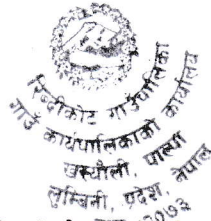 रिब्दीकोट गाउँपालिका
गाउँ कार्यपालिकाको कार्यालय
खस्यौली, पाल्पा
लुम्बिनी प्रदेश, नेपाल
२०७३